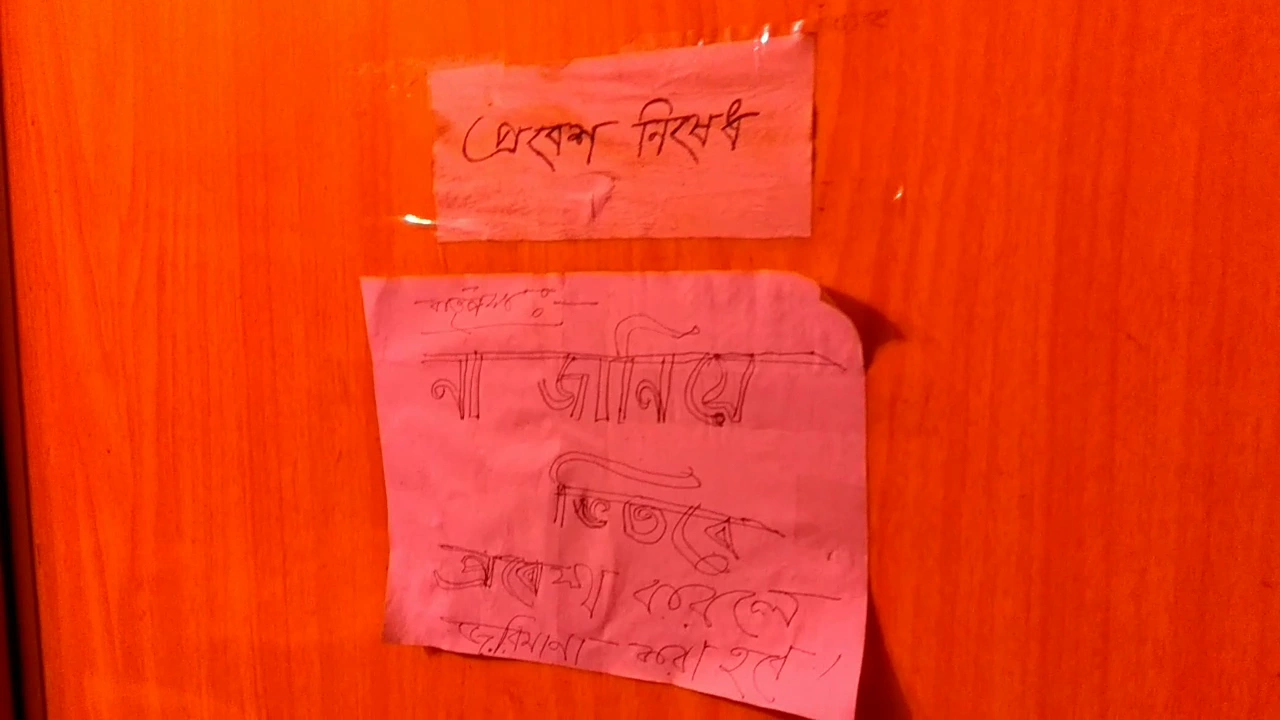 প্রবেশ নিষেধ
:—
না জানিয়ে
ভিতরে
প্রবেশ করলে
জরিমানা করা হবে।